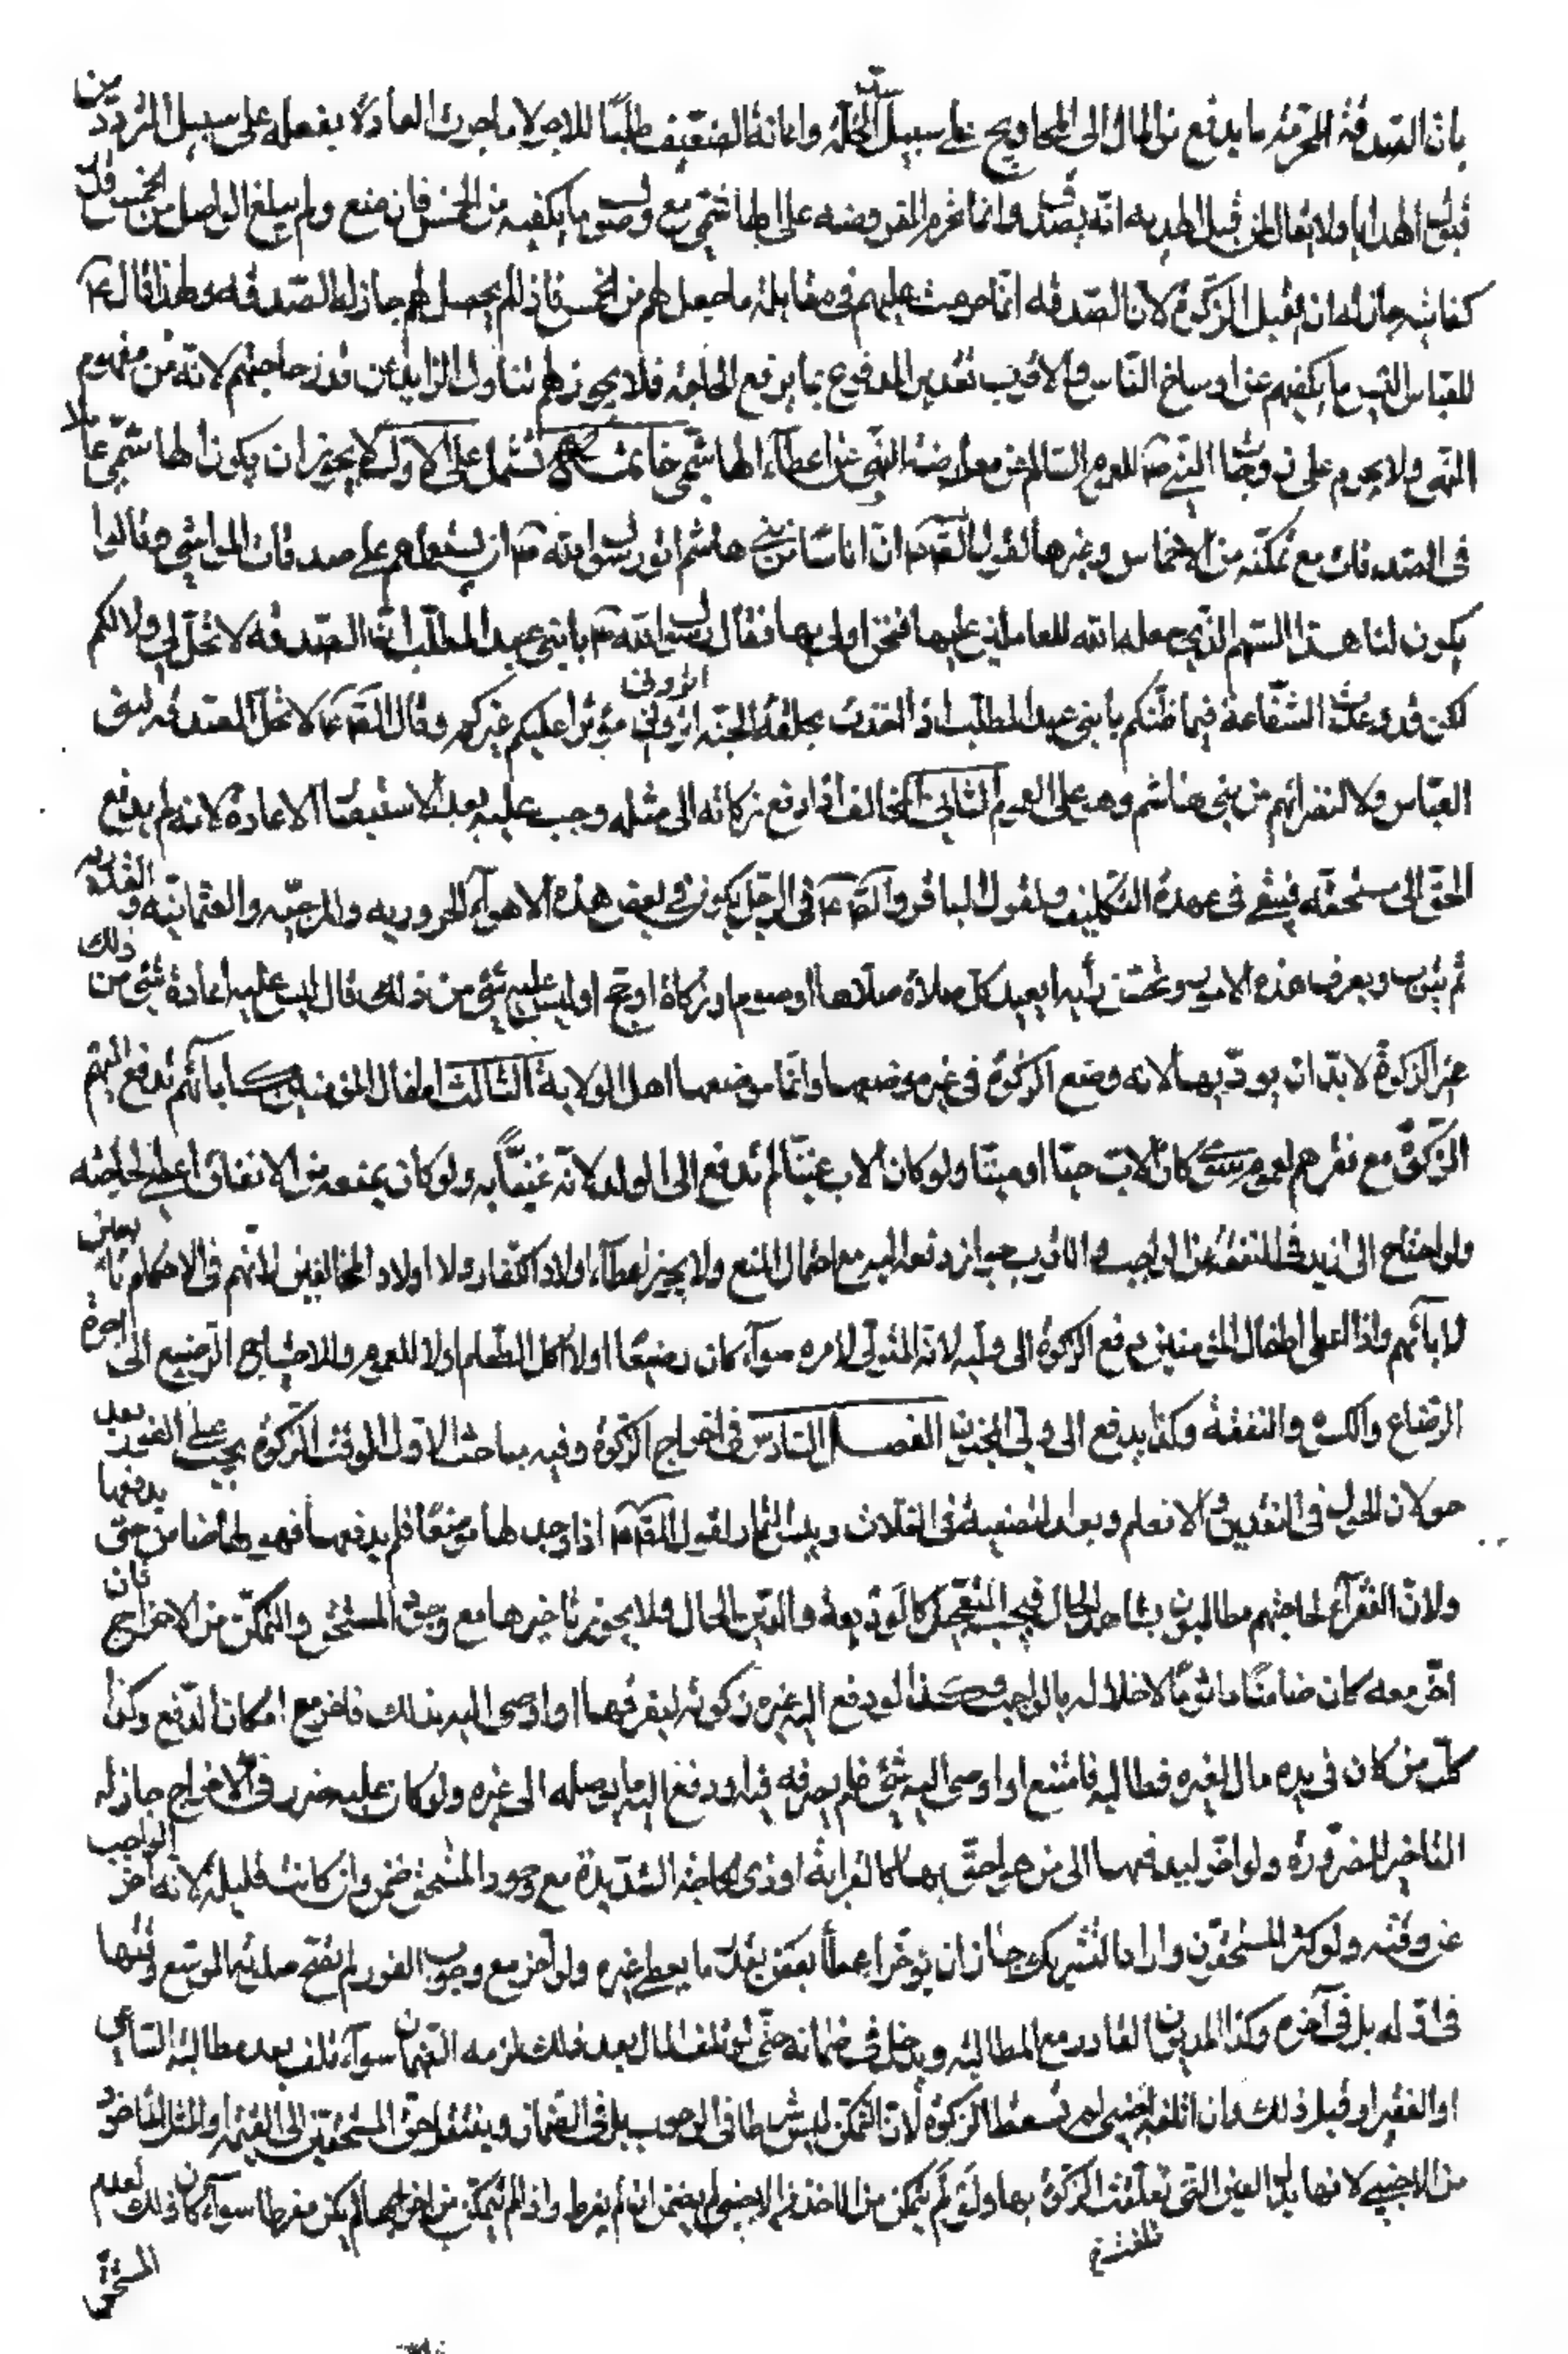 بان الصدقة المحرمة ما يدفع من المال الى المحاويج على سبيل سد الخلة واعانة الضعيف طلبا للاجر لا ما جرت العادة بفعله على سبيل التودد من
قبول الهدايا ولا يقال لمن قبل الهدية انه تصدق وانما تحرم المفروضة على الهاشمي مع وصول ما يكفيه من الخمس فان منع ولم يبلغ الواصل من الخمس قدر
كفايته جاز له ان يقبل الزكوة لان الصدقة انما حرمت عليهم في مقابلة ما جعل لهم من الخمس فاذا لم يحصل لهم جاز لهم الصدقة ولهذا قال ع
للعباس اليس ما يكفيهم عن اوساخ الناس والاقرب تقدير المدفوع بما يرفع الحاجة فلا يجوز لهم تناول الزايد عن قدر حاجتهم لانه من مفهوم
النهي ولا يحرم على زوجات النبي ص للعموم السالم عن معارضة النهي عن اعطاء الهاشمي خاتمة تشمل على الاول لا يجوز ان يكون الهاشمي عاملا
في الصدقات مع تمكنه من الاخماس وغيرها لقول الصادق ع ان اناسا من بني هاشم اتوا رسول الله ص ان يستعملهم على صدقات المواشي وقالوا
يكون لنا هذا السهم الذي جعله الله للعاملين عليها فنحن اولى بها فقال رسول الله ص يا بني عبد المطلب ان الصدقة لا تحل لي ولا لكم
لكن قد وعدت الشفاعة فيما ظنكم يا بني عبد المطلب اذا اخذت بحلقة الجنة اتروني اتروني مؤثرا عليكم غيركم وقال الصادق ع لا تحل الصدقة لبني
العباس ولا لنظرائهم من بني هاشم وهو على العموم الثاني المخالف اذا دفع زكاته الى مثله وجب عليه بعد الاستبصار الاعادة لانه لم يدفع
الحق الى مستحقه فيبقى في عهدة التكليف ولقول الباقر والصادق ع في الرجل يكون في بعض هذه الاهواء الحرورية والمرجئة والعثمانية والقدرية
ثم يتوب ويعرف هذه الامور ويحسن رأيه ايعيد كل صلاة صلاها او صوم او زكاة او حج او ليس عليه شيء من ذلك قال ليس عليه اعادة شيء من ذلك
غير الزكوة لا بد ان يؤديها لانه وضع الزكوة في غير موضعها وانما موضعها اهل الولاية الثالث اطفال المؤمنين كابائهم تدفع اليهم
الزكوة مع فقرهم لعموم سواء كان الاب حيا او ميتا ولو كان الاب غنيا لم تدفع الى الولد لانه غني به ولو كان يمنعه من الانفاق اعطي لحاجته
ولو احتاج الى ازيد في النفقة عن الواجب فالاقرب جواز دفعه اليه مع احتمال المنع ولا يجوز اعطاء اولاد الكفار ولا اولاد المخالفين لانهم في الاحكام تابعين
لابائهم واذا اعطى اطفال المؤمنين دفع الزكوة الى وليه لانه المتولي لامره سواء كان رضيعا او لا اكل الطعام او لا للعموم وللاحتياج الرضيع الى اجرة
الرضاع والكسوة والنفقة وكذا يدفع الى ولي المجنون الفصل السادس في اخراج الزكوة وفيه مباحث الاول الوقت الزكوة يجب على الفور بعد
حولان الحول في النقدين والانعام وبعد التصفية في الغلات ويبس الثمار لقول الصادق ع اذا وجد لها موضعا فلم يدفعها فهو لها ضامن حتى يدفعها
ولان الفقراء لحاجتهم مطالبون بشاهد الحال فيجب التعجيل كالوديعة والدين الحال ولا يجوز تاخيرها مع وجود المستحق والتمكن من الاخراج فان
اخر معه كان ضامنا ماثوما لاخلاله بالواجب وكذا لو دفع اليه غيره زكوته ليفرقها او اوصى اليه بذلك فاخر مع امكان الدفع وكذا
كل من كان في يده مال لغيره فطالبه فامتنع او اوصى اليه بشيء فلم يصرفه فيه او دفع اليه ما يوصله الى غيره ولو كان عليه ضرر في الاخراج جاز له
التاخير للضرورة ولو اخر ليدفعها الى من هو احق بها كالقرابة او ذي الحاجة الشديدة مع وجود المستحق ضمن وان كانت قليلة لانه اخر الواجب
عن وقته ولو كثر المستحقون واراد التشريك جاز ان يؤخر اعطاء بعض بقدر ما يعطي غيره ولو اخر مع وجوب الفور لم يصح صلاته الموسع وقتها
في اوله بل في آخره وكذا المديون القادر مع المطالبة ويدخل في ضمانه حتى لو تلف المال بعد ذلك لزمه الضمان سواء تلف بعد مطالبة الساعي
او الفقير او قبل ذلك وان اتلفه اجنبي لم تسقط الزكوة لان التمكن ليس شرطا في الوجوب بل في الضمان وينتقل حق المستحقين الى القيمة او المثل الماخوذ
من الاجنبي لانها بدل العين التي تعلقت الزكوة بها ولو لم يتمكن من الاخذ من الاجنبي لم يضمن ان لم يفرط واذا لم يتمكن من اخراجها لم يكن مفرطا سواء كان ذلك لعدم
المستحق